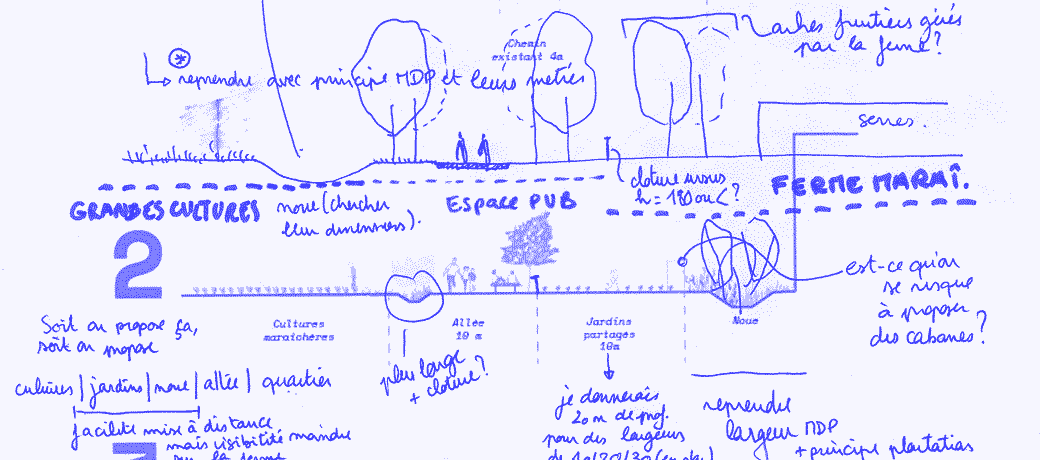 arbres fruitiers gérés
par la ferme?
Chemin
existant 4m
*
reprendre avec principe MDP et leurs métrés
serres.
clôture maxi
h = 180 ou <?
FERME MARAÎ.
GRANDES CULTURES
noue (chercher
leur dimensions).
Espace PUB
2
est-ce qu'on
se risque
à proposer
des cabanes?
Soit on propose ça,
soit on propose
Cultures
maraîchères
Allée
10 m
Jardins
partagés
10m
Noue
plus large
+ clôture?
cultures | jardins | noue | allée | quartier
facilite mise à distance
mais visibilité moindre
sur la ferme
je donnerais
20 m de prof.
pour des largeurs
de 10/20/30
reprendre
largeur MDP
+ principe plantations